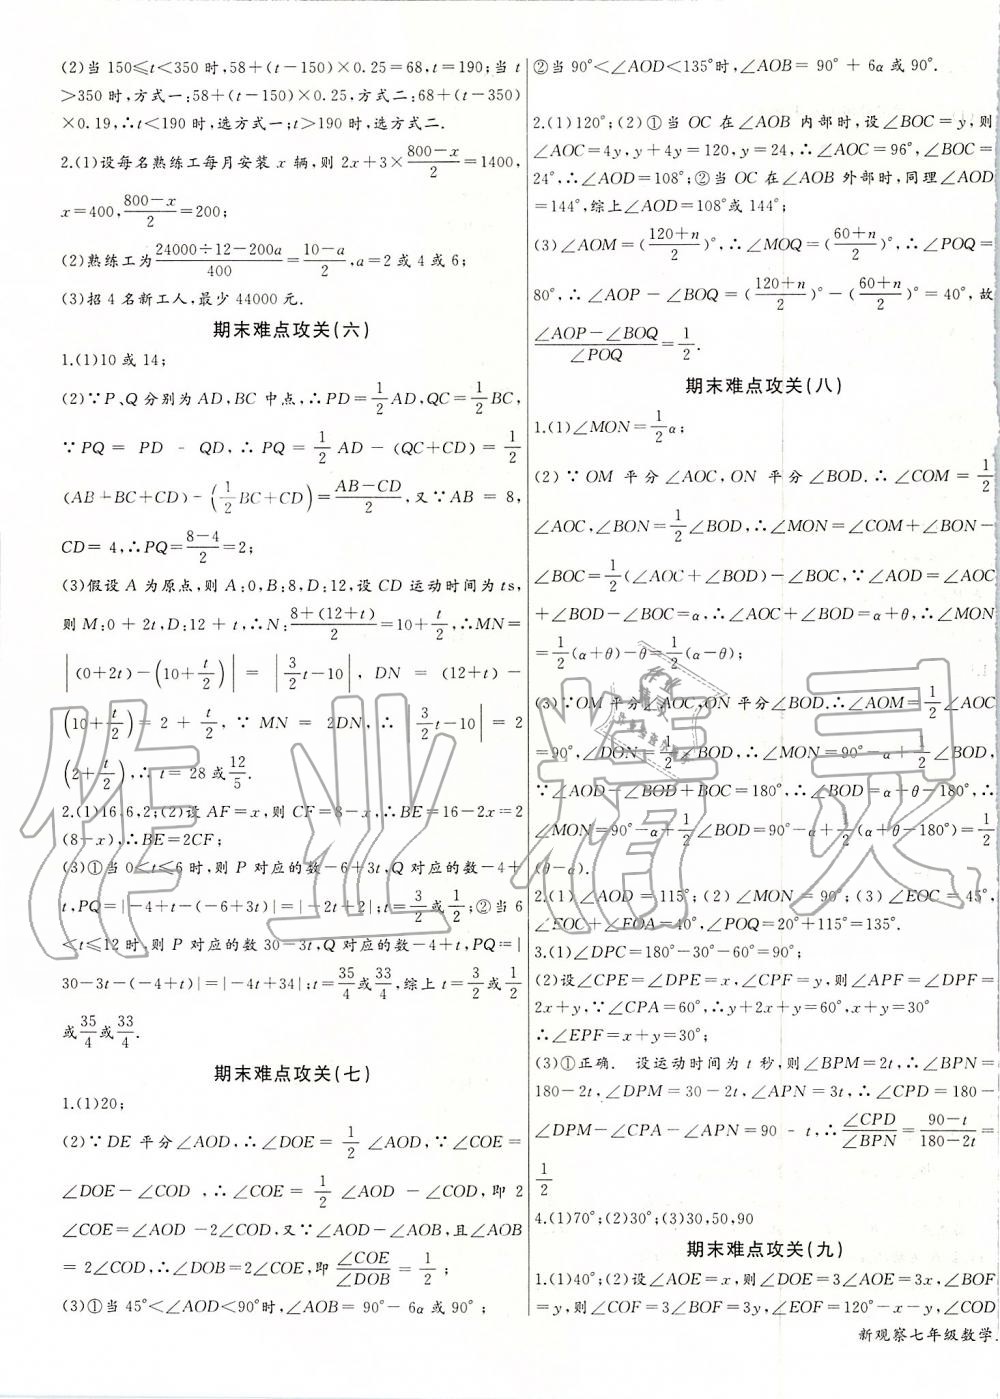 (2)当 150≤t<350 时,58+(t-150)×0.25=68,t=190;当 t
>350 时,方式一:58+(t-150)×0.25,方式二:68+(t-350)
×0.19,∴t<190 时,选方式一;t>190 时,选方式二.
2.(1)设每名熟练工每月安装 x 辆,则 2x+3×(800-x)/2=1400,
x=400,(800-x)/2=200;
(2)熟练工为(24000÷12-200a)/400=(10-a)/2,a=2 或 4 或 6;
(3)招 4 名新工人,最少 44000 元.
期末难点攻关(六)
1.(1)10 或 14;
(2)∵P、Q 分别为 AD,BC 中点,∴PD=1/2AD,QC=1/2BC,
∵PQ = PD - QD,∴PQ = 1/2 AD-(QC+CD)=1/2
(AB+BC+CD)-(1/2BC+CD)=(AB-CD)/2,又∵AB = 8,
CD= 4,∴PQ=(8-4)/2=2;
(3)假设 A 为原点,则 A:0,B:8,D:12,设 CD 运动时间为 ts,
则 M:0 + 2t,D:12 + t,∴N:(8+(12+t))/2=10+t/2,∴MN=
|(0+2t)-(10+t/2)| = |3/2t-10|, DN = (12+t)-
(10+t/2)= 2 + t/2, ∵ MN = 2DN,∴ |3/2t-10| = 2
(2+t/2),∴ t= 28 或12/5.
2.(1)16,6,2;(2)设 AF=x,则 CF=8-x,∴BE=16-2x=2
(8-x),∴BE=2CF;
(3)①当 0<t≤6 时,则 P 对应的数-6+3t,Q 对应的数-4+
t,PQ=|-4+t-(-6+3t)|=|-2t+2|;t=3/2或1/2;②当 6
<t≤12 时,则 P 对应的数 30-3t,Q 对应的数-4+t,PQ=|
30-3t-(-4+t)|=|-4t+34|;t=35/4或33/4,综上 t=3/2或1/2
或35/4或33/4.
期末难点攻关(七)
1.(1)20;
(2)∵DE 平分∠AOD,∴∠DOE= 1/2 ∠AOD,∵∠COE=
∠DOE-∠COD ,∴∠COE= 1/2 ∠AOD -∠COD,即 2
∠COE=∠AOD -2∠COD,又∵∠AOD-∠AOB,且∠AOB
= 2∠COD,∴∠DOB=2∠COE,即∠COE/∠DOB=1/2;
(3)①当 45°<∠AOD<90°时,∠AOB= 90°- 6α或 90°;
②当 90°<∠AOD<135°时,∠AOB= 90° + 6α 或 90°.
2.(1)120°;(2)①当 OC 在∠AOB 内部时,设∠BOC=y,则
∠AOC=4y,y+4y=120,y=24,∴∠AOC=96°,∠BOC=
24°,∴∠AOD=108°;②当 OC 在∠AOB 外部时,同理∠AOD
=144°,综上∠AOD=108°或 144°;
(3)∠AOM=((120+n)/2)°,∴∠MOQ=((60+n)/2)°,∴∠POQ=
80°,∴∠AOP-∠BOQ=((120+n)/2)°-((60+n)/2)=40°,故
(∠AOP-∠BOQ)/∠POQ=1/2.
期末难点攻关(八)
1.(1)∠MON=1/2α;
(2)∵OM 平分∠AOC,ON 平分∠BOD.∴∠COM=1/2
∠AOC,∠BON=1/2∠BOD,∴∠MON=∠COM+∠BON-
∠BOC=1/2(∠AOC+∠BOD)-∠BOC,∵∠AOD=∠AOC
+∠BOD-∠BOC=α,∴∠AOC+∠BOD=α+θ,∴∠MON
=1/2(α+θ)-θ=1/2(α-θ);
(3)∵OM 平分∠AOC,ON 平分∠BOD.∴∠AOM=1/2∠AOC
=90°,∠DON=1/2∠BOD,∴∠MON=90°-α+1/2∠BOD,
∵∠AOD-∠BOD+BOC=180°,∴∠BOD=α+θ-180°,∴
∠MON=90°-α+1/2∠BOD=90°-α+1/2(α+θ-180°)=1/2
(θ-α).
2.(1)∠AOD=115°;(2)∠MON=90°;(3)∠EOC=45°,
∠EOC+∠EOA=40°,∠POQ=20°+115°=135°.
3.(1)∠DPC=180°-30°-60°=90°;
(2)设∠CPE=∠DPE=x,∠CPF=y,则∠APF=∠DPF=
2x+y,∵∠CPA=60°,∴y+2x+y=60°,x+y=30°
∴∠EPF=x+y=30°;
(3)①正确. 设运动时间为 t 秒,则∠BPM=2t,∴∠BPN=
180-2t,∠DPM=30-2t,∠APN=3t,∴∠CPD=180-
∠DPM-∠CPA-∠APN=90 - t,∴∠CPD/∠BPN=(90-t)/(180-2t)=
1/2
4.(1)70°;(2)30°;(3)30,50,90
期末难点攻关(九)
1.(1)40°;(2)设∠AOE=x,则∠DOE=3∠AOE=3x,∠BOF
=y,则∠COF=3∠BOF=3y,∠EOF=120°-x-y,∠COD
新观察七年级数学.
作业精灵